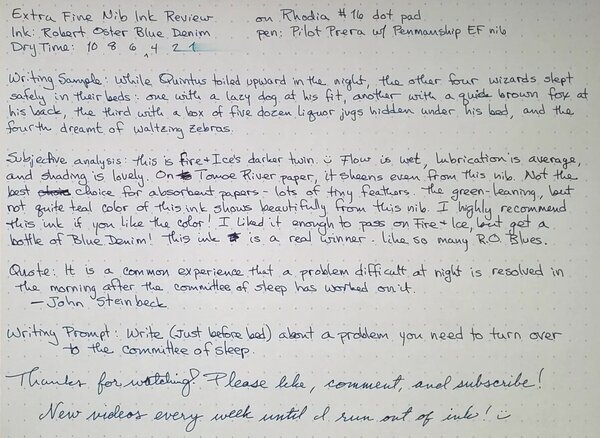 Extra Fine Nib Ink Review on Rhodia #16 dot pad
Ink: Robert Oster Blue Denim pen: Pilot Prera w/ Penmanship EF nib
Dry Time: 10 8 6 4 2 1
Writing Sample: While Quintus toiled upward in the night, the other four wizards slept
safely in their beds: one with a lazy dog at his fit, another with a quick brown fox at
his back, the third with a box of five dozen liquor jugs hidden under his bed, and the
fourth dreamt of waltzing zebras.
Subjective analysis: this is Fire & Ice's darker twin. Flow is wet, lubrication is average,
and shading is lovely. On Tomoe River paper, it sheens even from this nib. Not the
best choice for absorbent papers - lots of tiny feathers. The green-leaning, but
not quite teal color of this ink shows beautifully from this nib. I highly recommend
this ink if you like the color! I liked it enough to pass on Fire & Ice, but get a
bottle of Blue Denim! This ink is a real winner. Like so many R.O. Blues.
Quote: It is a common experience that a problem difficult at night is resolved in
the morning after the committee of sleep has worked on it.
- John Steinbeck
Writing Prompt: Write (just before bed) about a problem you need to turn over
to the committee of sleep.
Thanks for watching! Please like, comment, and subscribe!
New videos every week until I run out of ink!